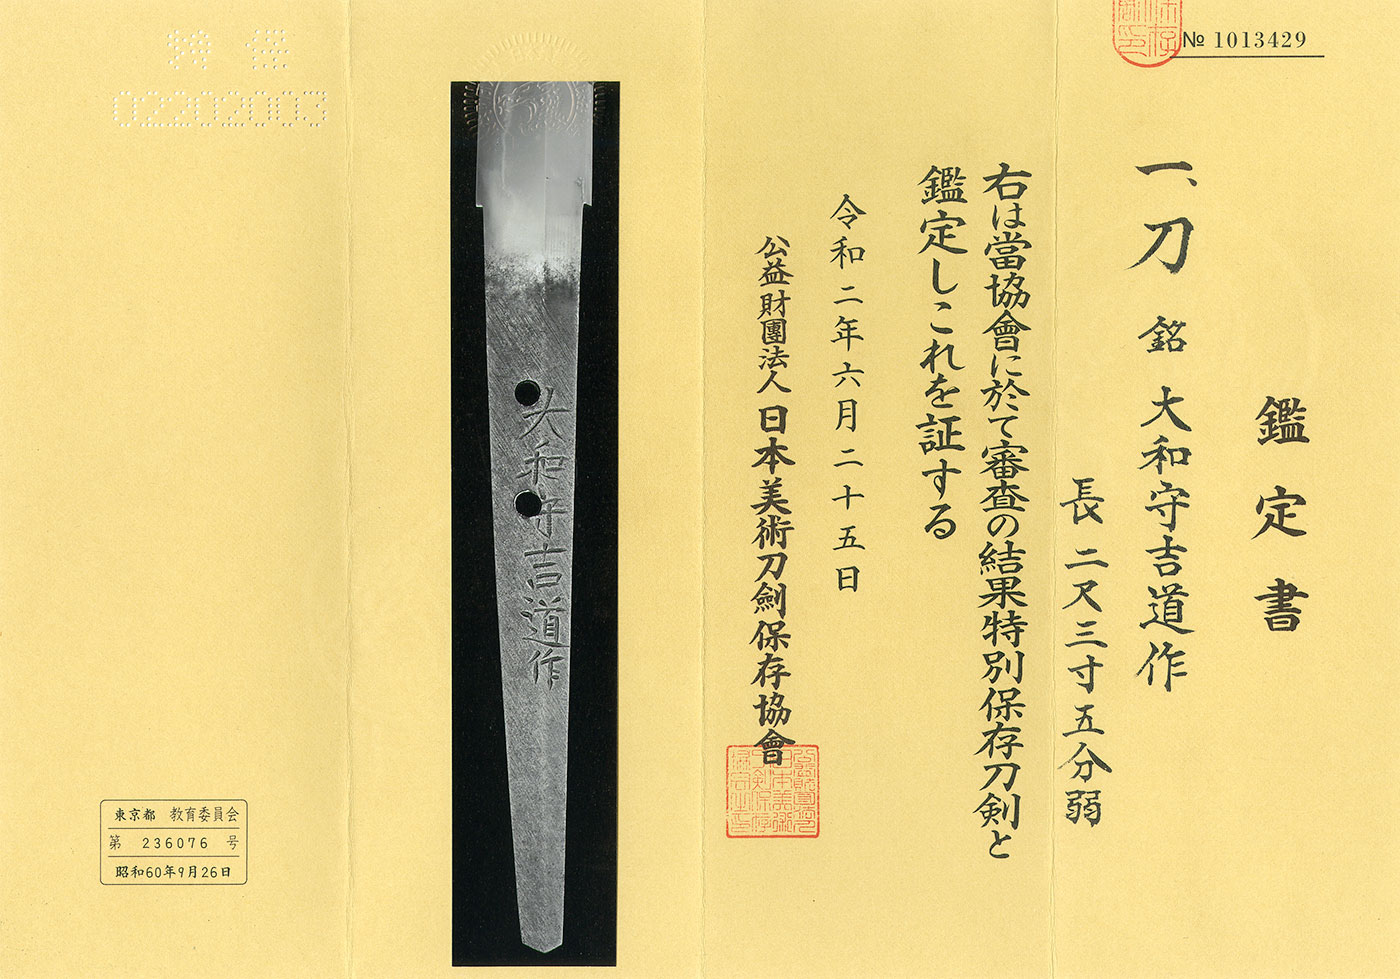 № 1013429
鑑定書
一、刀 銘 大和守吉道作
長 二尺三寸五分弱
右は當協會に於て審査の結果特別保存刀剣と
鑑定しこれを証する
令和二年六月二十五日
公益財團法人 日本美術刀劍保存協會
大和守吉道作
特 保
02202003
東京都 教育委員会
第 236076 号
昭和60年9月26日